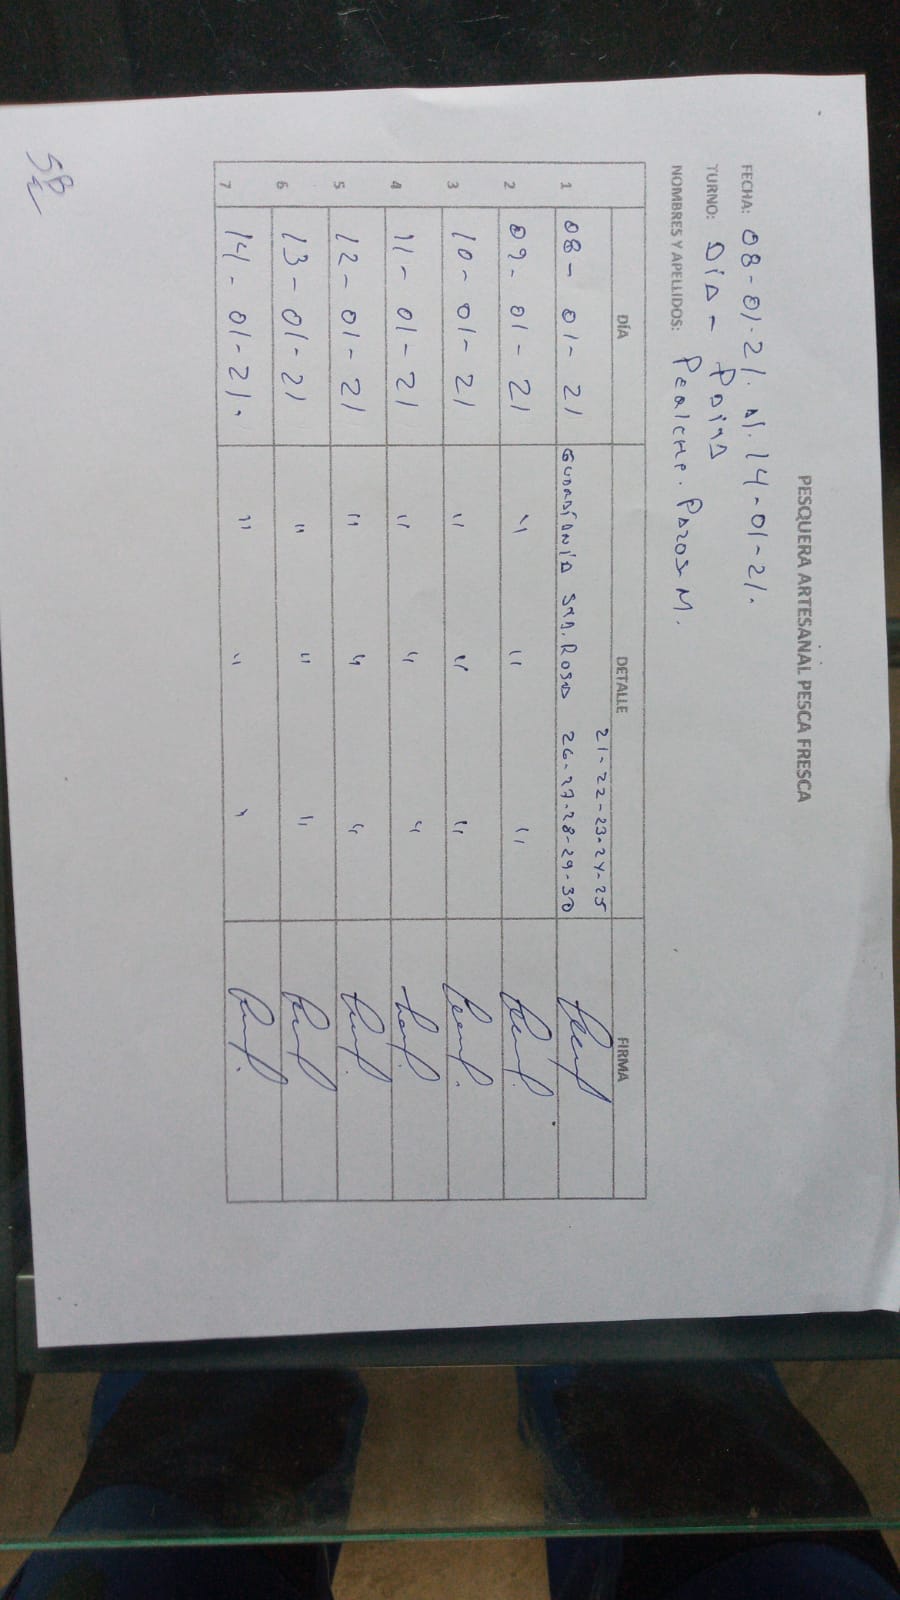 PESQUERA ARTESANAL PESCA FRESCA
FECHA: 08-01-21. Al. 14-01-21.
TURNO: DIA -
NOMBRES Y APELLIDOS: Pealche. Pazos M.
DÍA DETALLE FIRMA
21-22-23-24-25
1 08-01-21 GUARDIANIA STA. ROSA 26-27-28-29-30
2 09-01-21 " " "
3 10-01-21 " " "
4 11-01-21 " " "
5 12-01-21 " " "
6 13-01-21 " " "
7 14-01-21. " " "